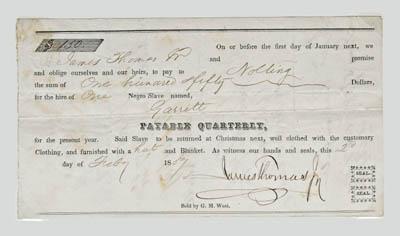 $ 150
On or before the first day of January next, we
James Thomas Jr promise
and oblige ourselves and our heirs, to pay to Nolling
the sum of One hundred & fifty Dollars,
for the hire of One Negro Slave named,
Garrett
PAYABLE QUARTERLY,
for the present year. Said Slave to be returned at Christmas next, well clothed with the customary
Clothing, and furnished with a hat and Blanket. As witness our hands and seals, this 2d
day of Feby 18
James Thomas Jr
SEAL.
SEAL.
Sold by G. M. West.